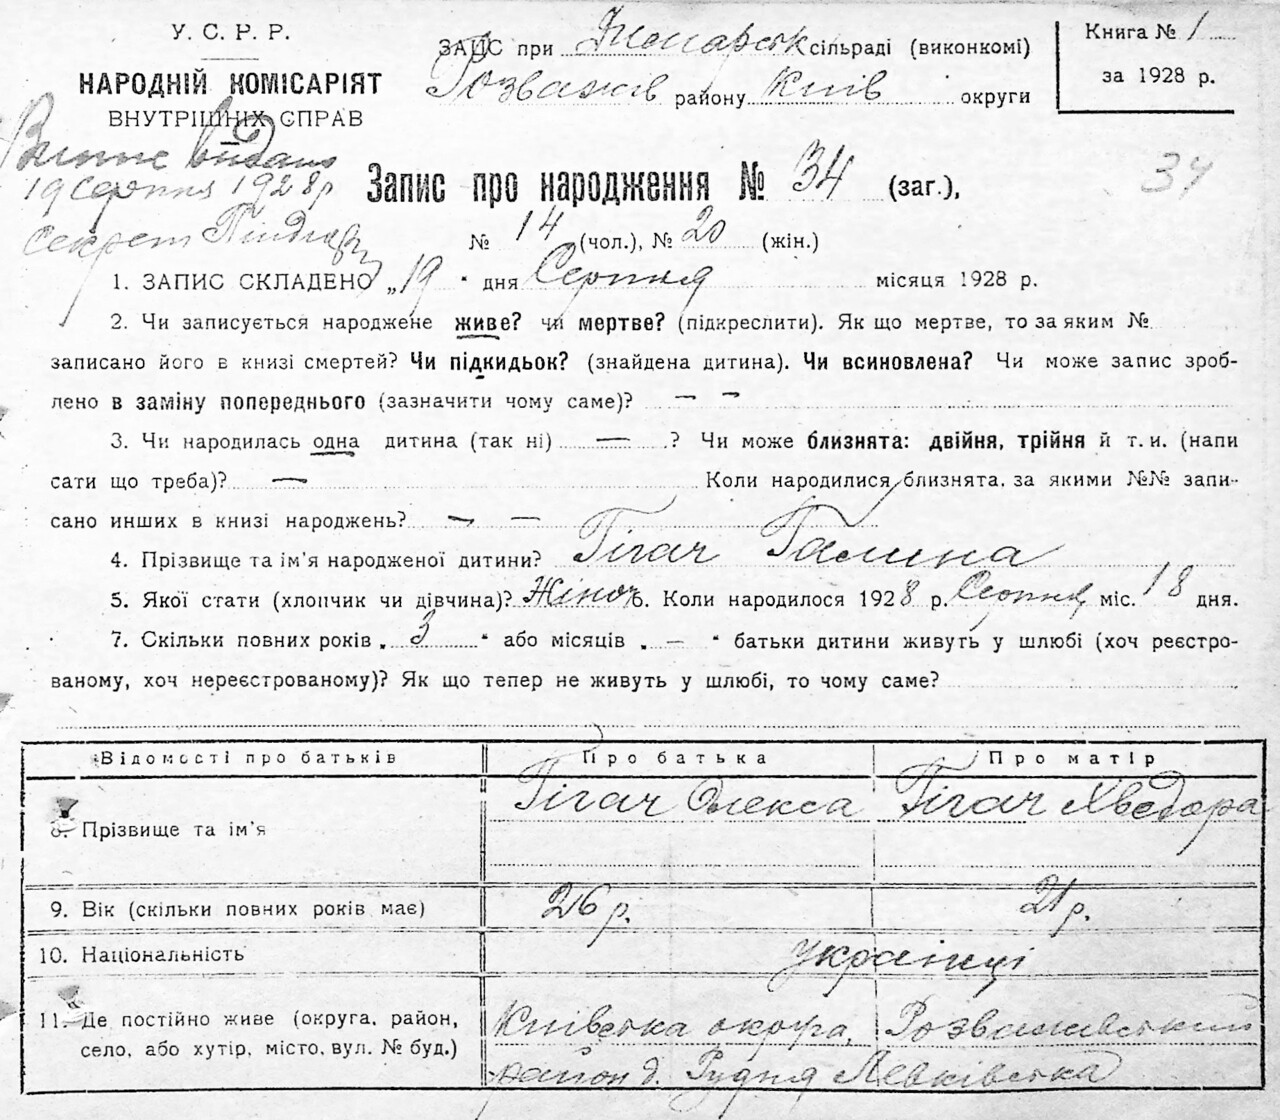 У. С. Р. Р.
НАРОДНІЙ КОМІСАРІЯТ
ВНУТРІШНІХ СПРАВ
ЗАГС при сільраді (виконкомі)
Розважів району Київ округи
Книга № 1
за 1928 р.
видано
19 Серпня 1928 р
секрет
Запис про народження № 34 (заг.),
34
№ 14 (чол.), № 20 (жін.)
1. ЗАПИС СКЛАДЕНО „19 “ дня Серпня місяця 1928 р.
2. Чи записується народжене живе? чи мертве? (підкреслити). Як що мертве, то за яким №
записано його в книзі смертей? Чи підкидьок? (знайдена дитина). Чи всиновлена? Чи може запис зроб-
лено в заміну попереднього (зазначити чому саме)? — —
3. Чи народилась одна дитина (так ні) — ? Чи може близнята: двійня, трійня й т. и. (напи
сати що треба)? — Коли народилися близнята, за якими №№ запи-
сано инших в книзі народжень? — —
4. Прізвище та ім’я народженої дитини? Гігач Галина
5. Якої стати (хлопчик чи дівчина)? Жіноч 6. Коли народилося 1928 р. Серпня міс. 18 дня.
7. Скільки повних років „ 3 “ або місяців „ — “ батьки дитини живуть у шлюбі (хоч реєстро-
ваному, хоч нереєстрованому)? Як що тепер не живуть у шлюбі, то чому саме?
Відомості про батьків Про батька Про матір
8. Прізвище та ім’я Гігач Олекса Гігач Хведора
9. Вік (скільки повних років має) 26 р. 21 р.
10. Національність українці
11. Де постійно живе (округа, район, Київська округа, Розважівський
село, або хутір, місто, вул. № буд.) район д. Рудня Левківська